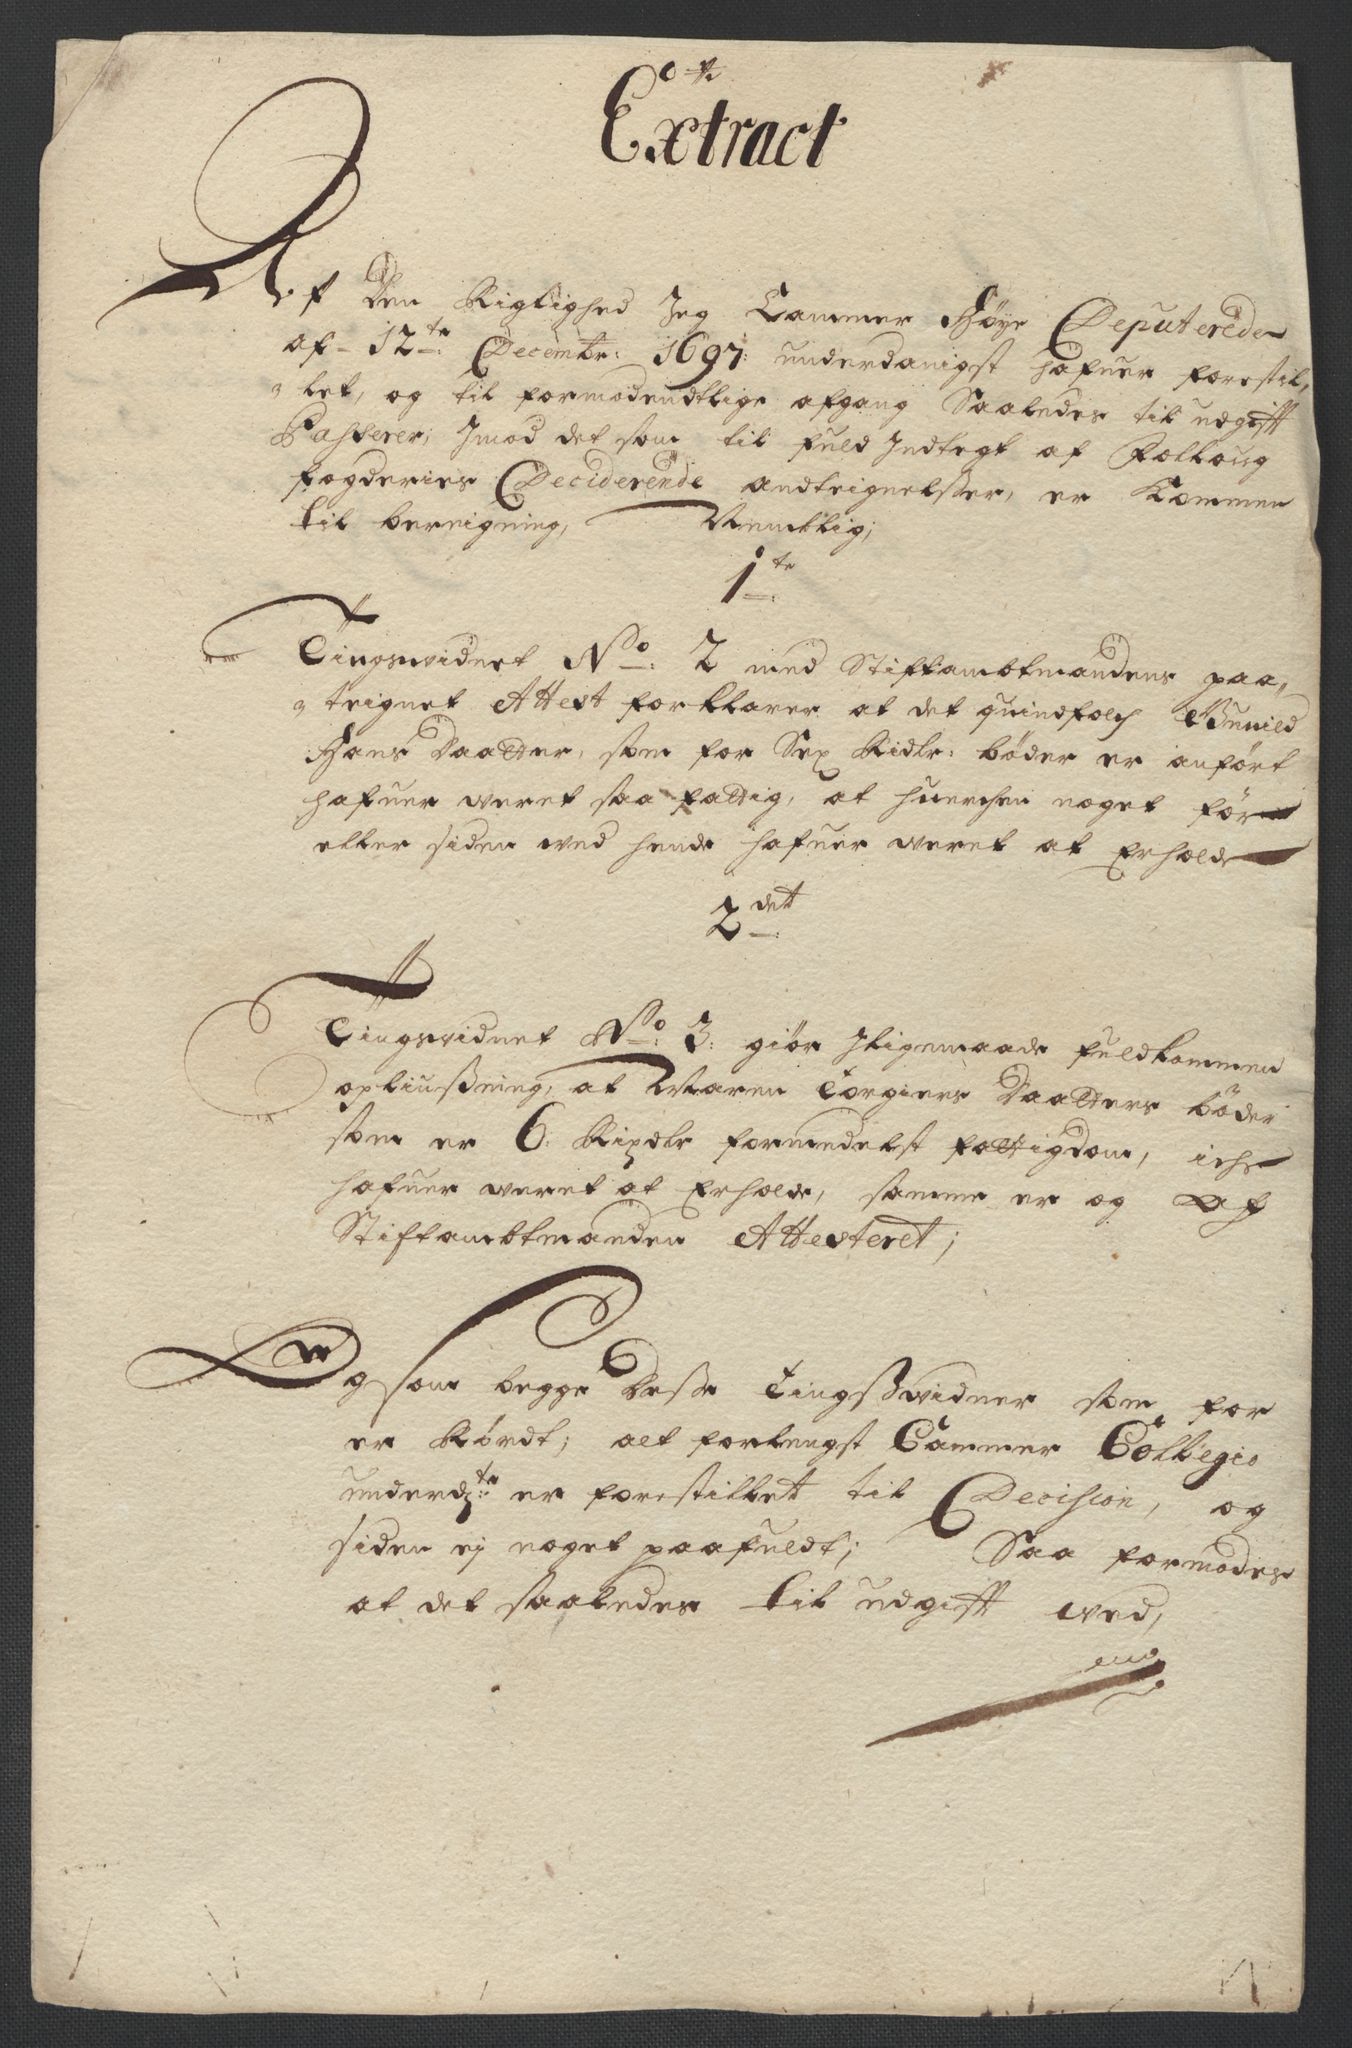 Extract
Af den Rigtighed Jeg Cammer Høye Deputerede
af 12te Decembr: 1697: underdanigst hafuer forestil,
let, og til formodendtlige afgang Saaledes til udgifft
Passerer, Jmod det som til fuld Jndtegt af Follong
fogderies Deciderende andteignelsser, er Kommen
til bereigning, Nemblig;
1te
Tingsvidnet No: 2 med Stiftambtmandens paa,
teignet Attest forklarer at det quindfolch Gunild
Hans Daatter, som for Sex Ridlr: bøder er anført
hafuer weret saa fattig, at huerchen noget før
eller siden ved hende hafuer weret at Erholde
2det
Tingsvidnet No: 3: giør Jligemaade fuldkommen
opliussning, at Maren Torgiers Daatters bøder
som er 6 Rixdlr formedelst fattigdom, iche
hafuer weret at Erholde, samme er og af
Stiftambtmanden Attesteret;
Og som begge Desse Tingsswidner som for
er Rørdt; alt forlengst Cammer Collegio
underd:te er forestillet til Decision, og
siden ej noget paafuldt; Saa formodes
at det saaledes til udgifft ved,